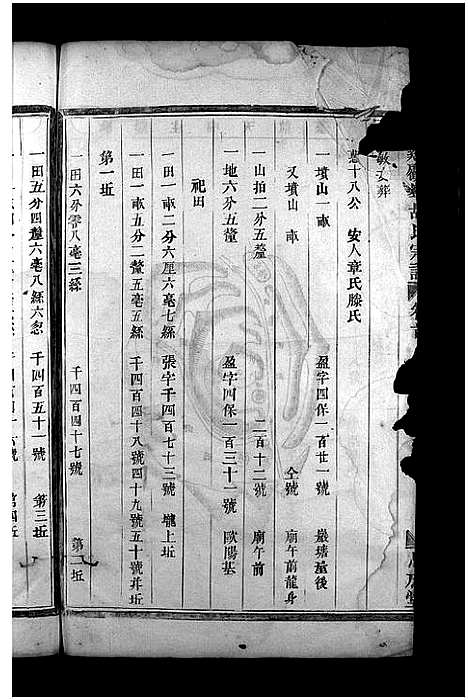 胡氏宗譜
敏文葬
十八公　安人章氏滕氏
一墳山一畝　盈字四保一百廿一號　巖塘臺後
又墳山畝　仝號　廟午前龍身
一山拍二分五釐　二百十二號　廟午前
一地六分五釐　盈字四保一百三十一號　歐陽基
祀田
一田一畝二分六厘六毫七絲　張字千四百七十三號　壠上坵
一田一畝五分二釐五毫五絲　千四百四十八號四十九號五十號并坵
第一坵
一田六分零八毫三絲　千四百四十七號　第二坵
一田五分四釐六毫八絲六忽　千四百五十一號　第三坵
號　第四坵